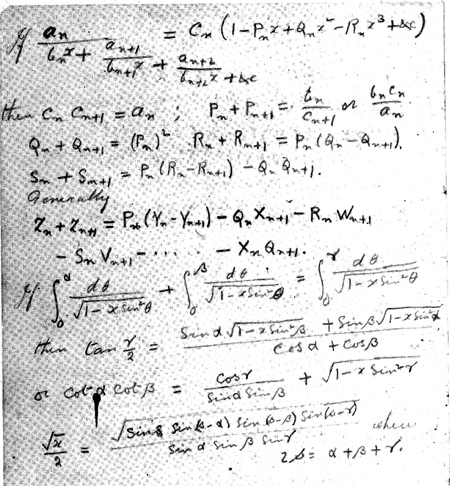 If a_n/(b_n x + a_{n+1}/(b_{n+1} x + a_{n+2}/(b_{n+2} x + &c))) = C_n (1 - P_n x + Q_n x² - R_n x³ + &c)
then C_n C_{n+1} = a_n ; P_n + P_{n+1} = b_n/C_{n+1} or b_n C_n/a_n
Q_n + Q_{n+1} = (P_n)² R_n + R_{n+1} = P_n (Q_n - Q_{n+1}).
S_n + S_{n+1} = P_n (R_n - R_{n+1}) - Q_n Q_{n+1}.
Generally
Z_n + Z_{n+1} = P_n (Y_n - Y_{n+1}) - Q_n X_{n+1} - R_n W_{n+1}
- S_n V_{n+1} - ... - X_n Q_{n+1}.
If ∫_0^α dθ/√(1 - x sin²θ) + ∫_0^β dθ/√(1 - x sin²θ) = ∫_0^γ dθ/√(1 - x sin²θ)
then tan γ/2 = (Sin α √(1 - x sin²β) + Sin β √(1 - x sin²α))/(Cos α + Cos β)
or cot α cot β = Cos γ/(Sin α Sin β) + √(1 - x Sin²γ)
√x/2 = √(Sin s Sin(s-α) Sin(s-β) Sin(s-γ))/(Sin α Sin β Sin γ) where
2s = α + β + γ.